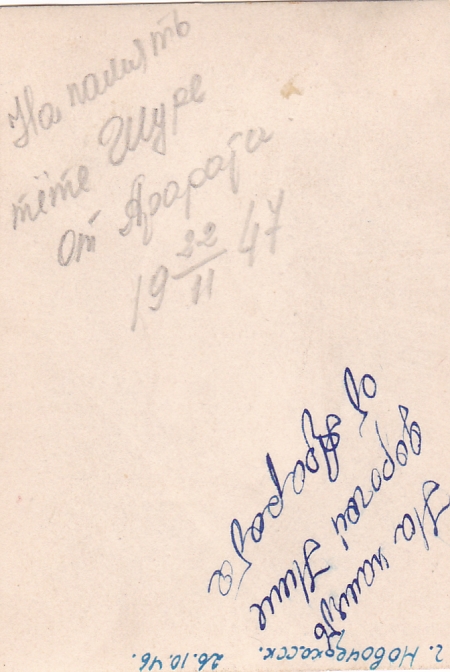 На память
тёте Шуре
от Арарата
19 22/11 47
На память
дорогой Нине
от Арарата
г. Новочеркасск. 26.10.46.